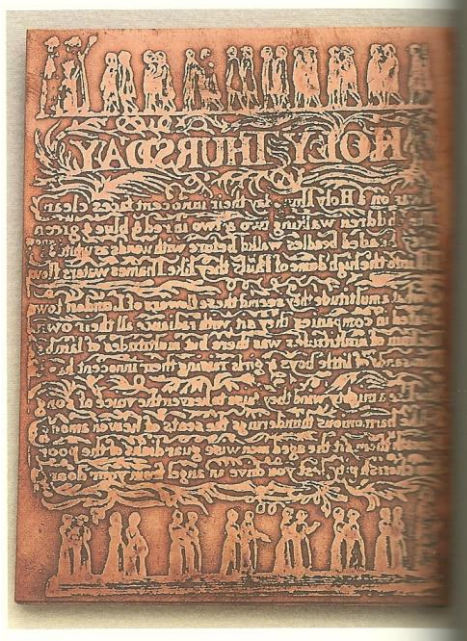 HOLY THURSDAY
on a Holy Thursday their innocent faces clean
children walking two & two in red & blue & green
headed beadles walkd before with wands as white
into the high dome of Pauls they like Thames waters flow
what a multitude they seemd these flowers of London town
in companies they sit with radiance all their own
hum of multitudes was there but multitudes of lambs
of little boys & girls raising their innocent
like a mighty wind they raise to heaven the voice of song
harmonious thunderings the seats of heaven among
them sit the aged men wise guardians of the poor
cherish pity lest you drive an angel from your door